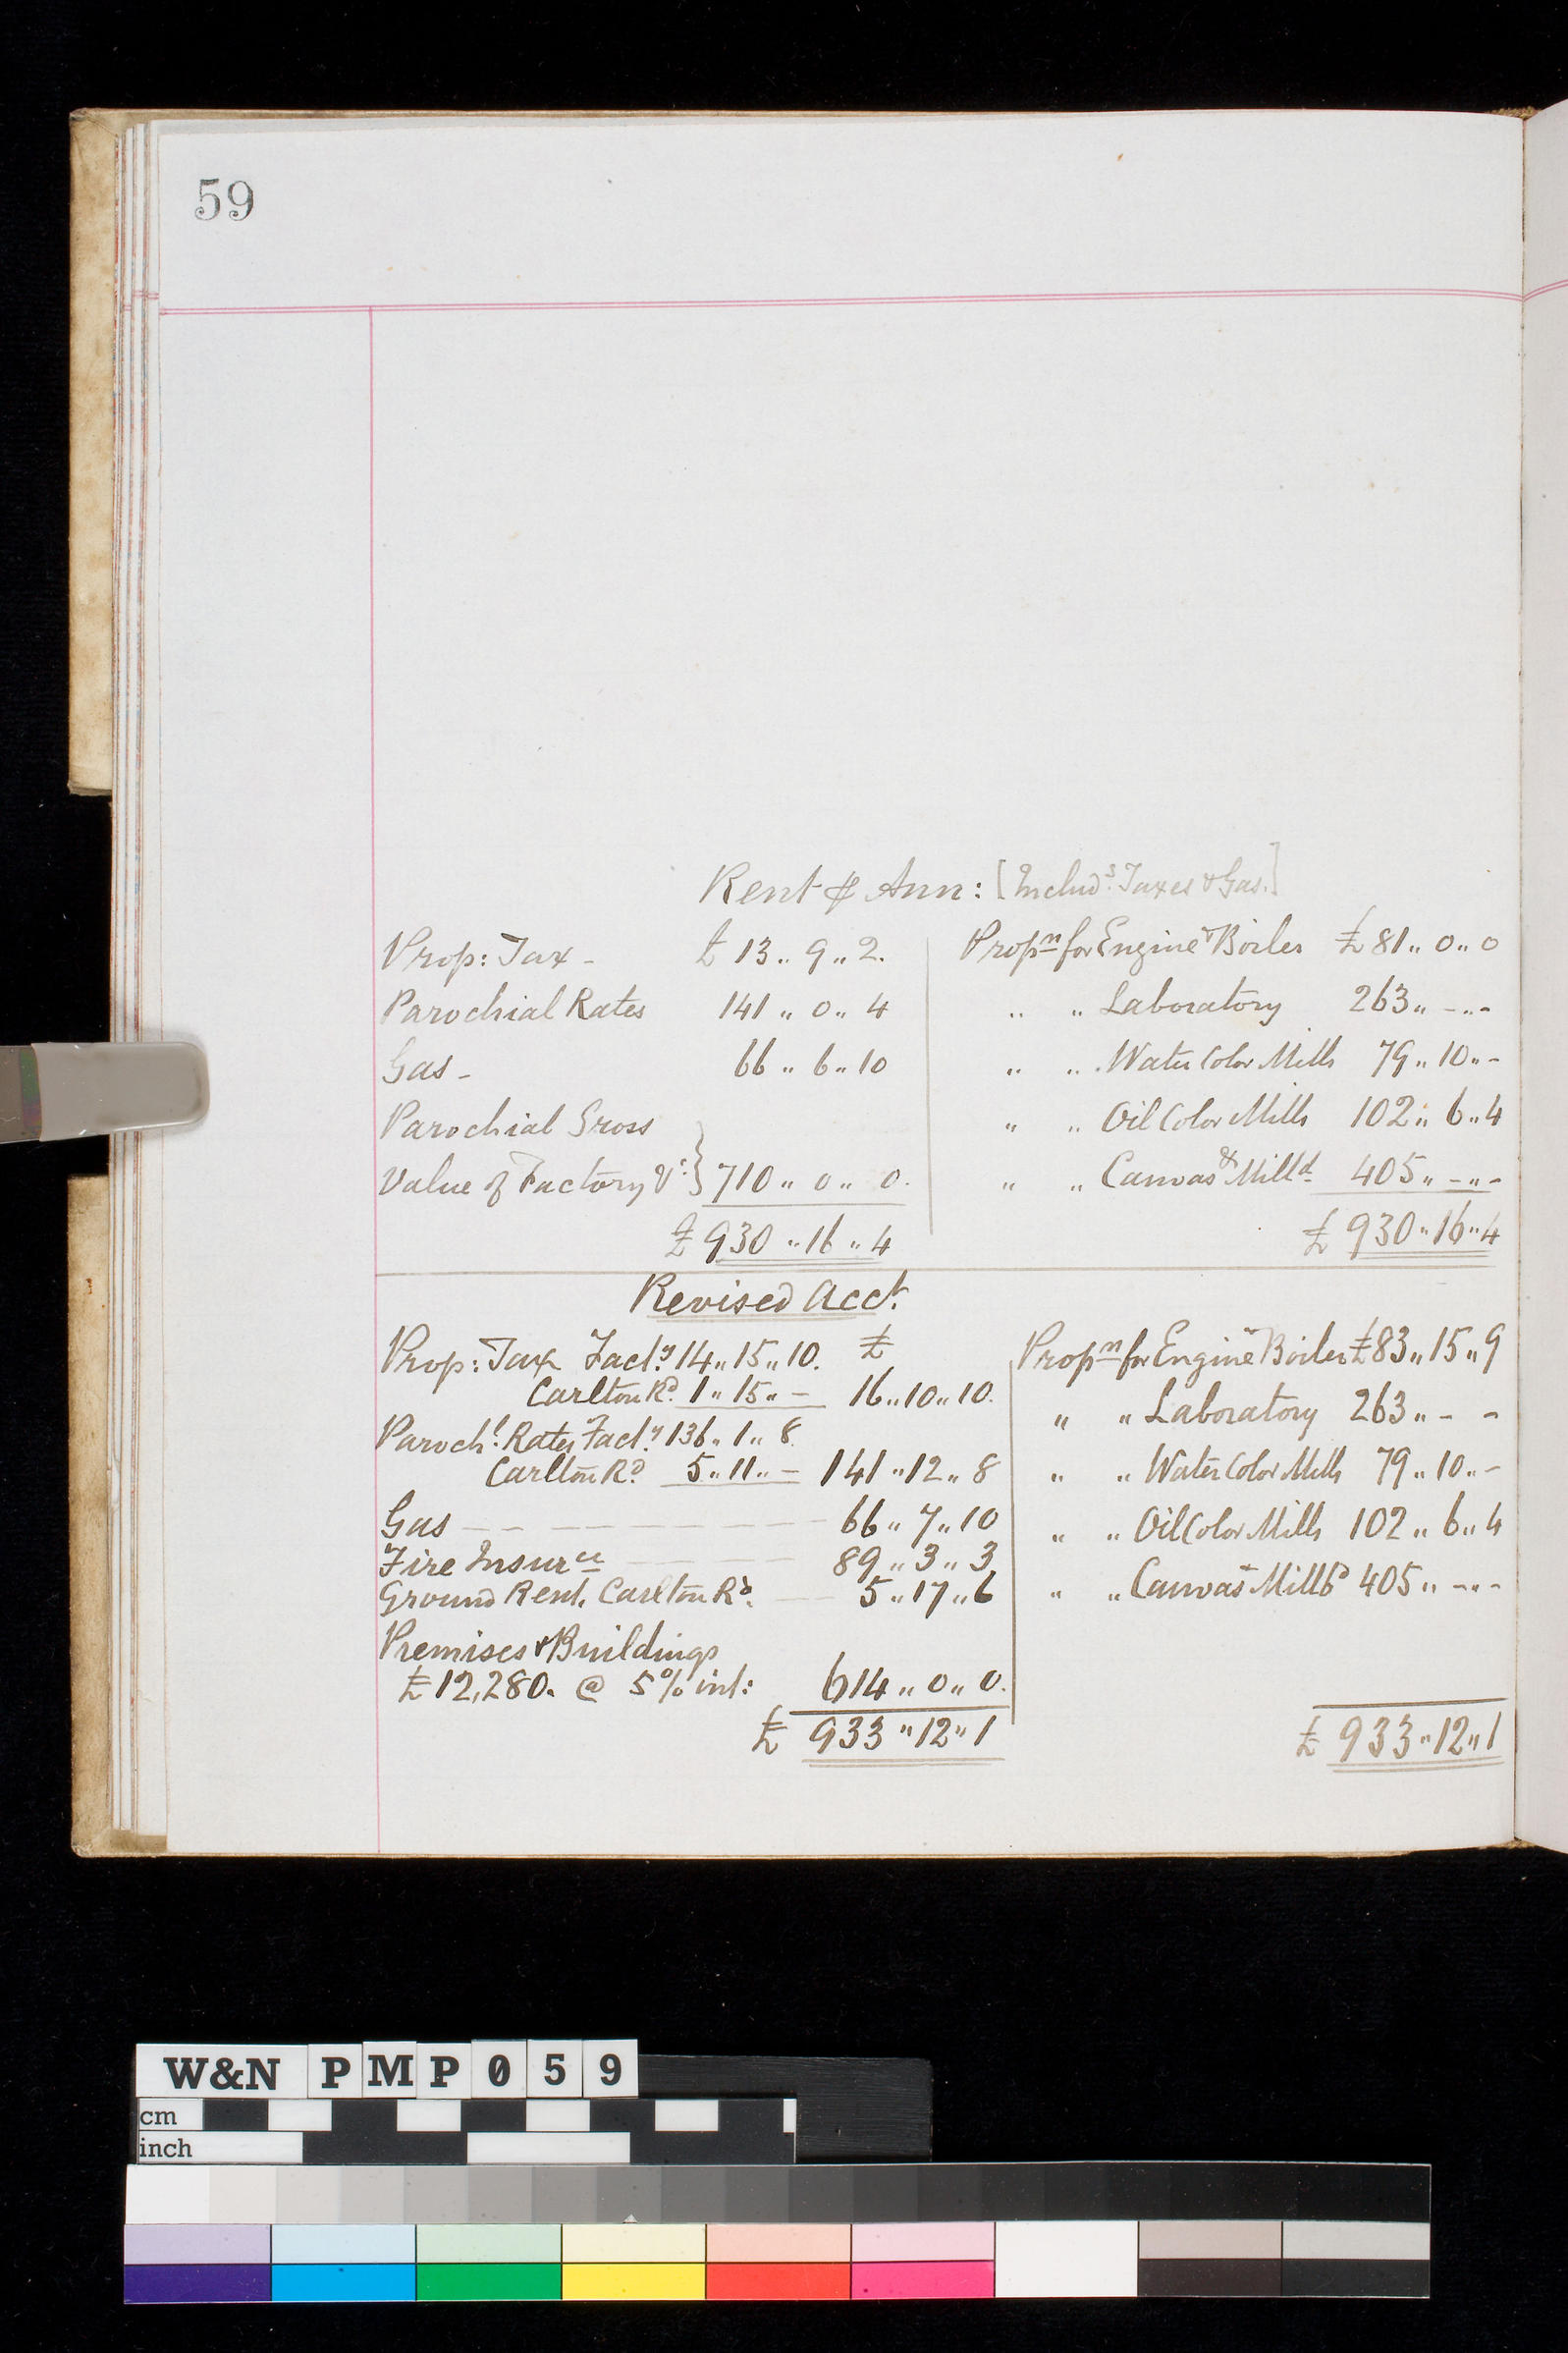 59
Rent ⅌ Ann: [Includg. Taxes & Gas.]
Prop: Tax - £ 13 " 9 " 2.
Parochial Rates 141 " 0 " 4
Gas - 66 " 6 " 10
Parochial Gross
Value of Factory Vc: } 710 " 0 " 0.
£ 930 " 16 " 4
Propn for Engine & Boiler £ 81 " 0 " 0
" " Laboratory 263 " - " -
" " Water Color Mills 79 " 10 " -
" " Oil Color Mills 102 " 6 " 4
" " Canvas & Milld 405 " - " -
£ 930 " 16 " 4
Revised Acct.
Prop: Tax Facty. 14 " 15 " 10. £
Carlton Rd. 1 " 15 " - 16 " 10 " 10.
Parochl. Rates Facty. 136 " 1 " 8.
Carlton Rd. 5 " 11 " - 141 " 12 " 8
Gas 66 " 7 " 10
Fire Insurce 89 " 3 " 3
Ground Rent. Carlton Rd. 5 " 17 " 6
Premises & Buildings
£ 12,280. @ 5% int: 614 " 0 " 0.
£ 933 " 12 " 1
Propn for Engine & Boiler £ 83 " 15 " 9
" " Laboratory 263 " - -
" " Water Color Mills 79 " 10 " -
" " Oil Color Mills 102 " 6 " 4
" " Canvas & Millbd 405 " - " -
£ 933 " 12 " 1
W&N PMP059
cm
inch